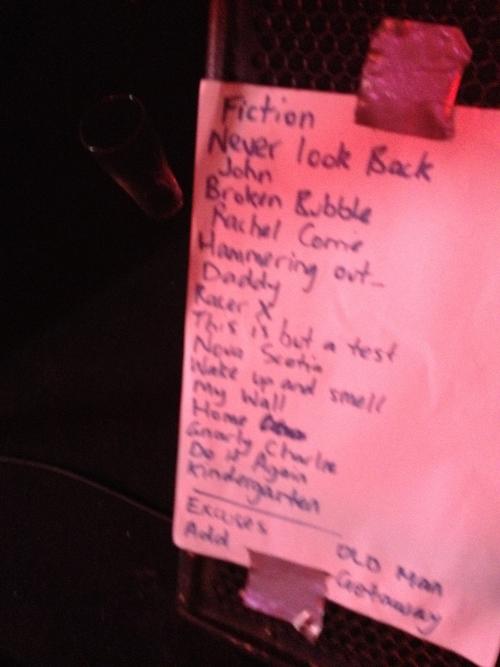 Fiction
Never look Back
John
Broken Bubble
Rachel Corrie
Hammering out...
Daddy
Racer X
This is but a test
Nova Scotia
Wake up and smell
My Wall
Home
Gnarly Charlie
Do it Again
Kindergarten
Excuses
Add
OLD Man
Getaway